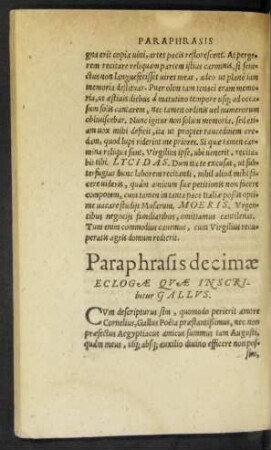 PARAPHRASIS
gna erit copia uini, artes pacis reflorescent. At pergerem
recitare reliquam partem istius carminis, si senectus
non longius uires meas, adeo ut planè iam
memoria Puer olim tam tenaci eram memoria,
ut æstiuis diebus à matutino tempore usque ad occasum
solis cantarem, nec tamen ordinis uel numerorum
obliuiscebar. Nunc igitur non solum memoria, sed etiam
uox mihi deficit, ita ut propter raucedinem credendum,
quod lupi uiderint me priores. Si quæ tamen carmina
reliqua sunt, Virgilius ipse, ubi uenerit, recitabit
tibi. LYCIDAS. Dum ita te excusas, ut subterfugias
hunc laborem recitandi, nihil aliud mihi facere
uideris, quàm amicum suæ petitionis non facere
compotem, cum tamen in tanta pace Italiæ possis optime
uacare studijs Musarum. MOERIS, Vrgentibus
negocijs familiaribus, omittamus cantilenas.
Tum enim commodius canimus, cum Virgilius recuperatis
agris domum redierit.
Paraphrasis decimæ
ECLOGÆ QVÆ INSCRI-
bitur GALLVS.
CVm descripturus sim, quomodo perierit amore
Cornelius Gallus Poëta præstantissimus, nec non
præfectus Aegyptiacus amicus summus tam Augusti,
quàm meus, idque absque auxilio diuino efficere non possim,